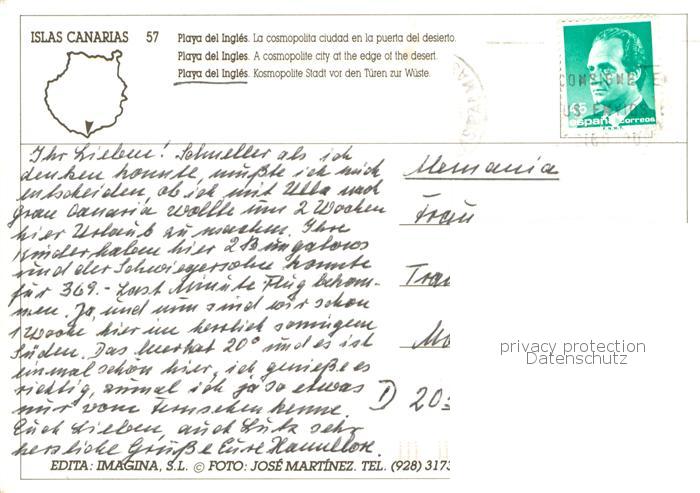 ISLAS CANARIAS 57
Playa del Inglés. La cosmopolita ciudad en la puerta del desierto.
Playa del Inglés. A cosmopolite city at the edge of the desert.
Playa del Inglés. Kosmopolite Stadt vor den Türen zur Wüste.
45
españa correos
Ihr Lieben! Schneller als ich
denken konnte, mußte ich mich
entscheiden, ob ich mit Ulla nach
gran Canaria wollte um 2 Wochen
hier Urlaub zu machen. Ihre
Kinder haben hier 2 Bungalows
und der Schwiegersohn konnte
für 369.- Last Minute Flug bekom-
men. Ja, und nun sind wir schon
1 Woche hier im herrlich sonnigen
Süden. Das Meer hat 20° und es ist
einmal schön hier, ich genieße es
richtig, zumal ich ja so etwas
nur vom Fernsehen kenne.
Euch Lieben, auch Lutz sehr
herzliche Grüße Eure Hannelore.
Alemania
Frau
Mo
D 20
privacy protection
Datenschutz
EDITA: IMAGINA, S.L. © FOTO: JOSÉ MARTÍNEZ. TEL. (928) 3173